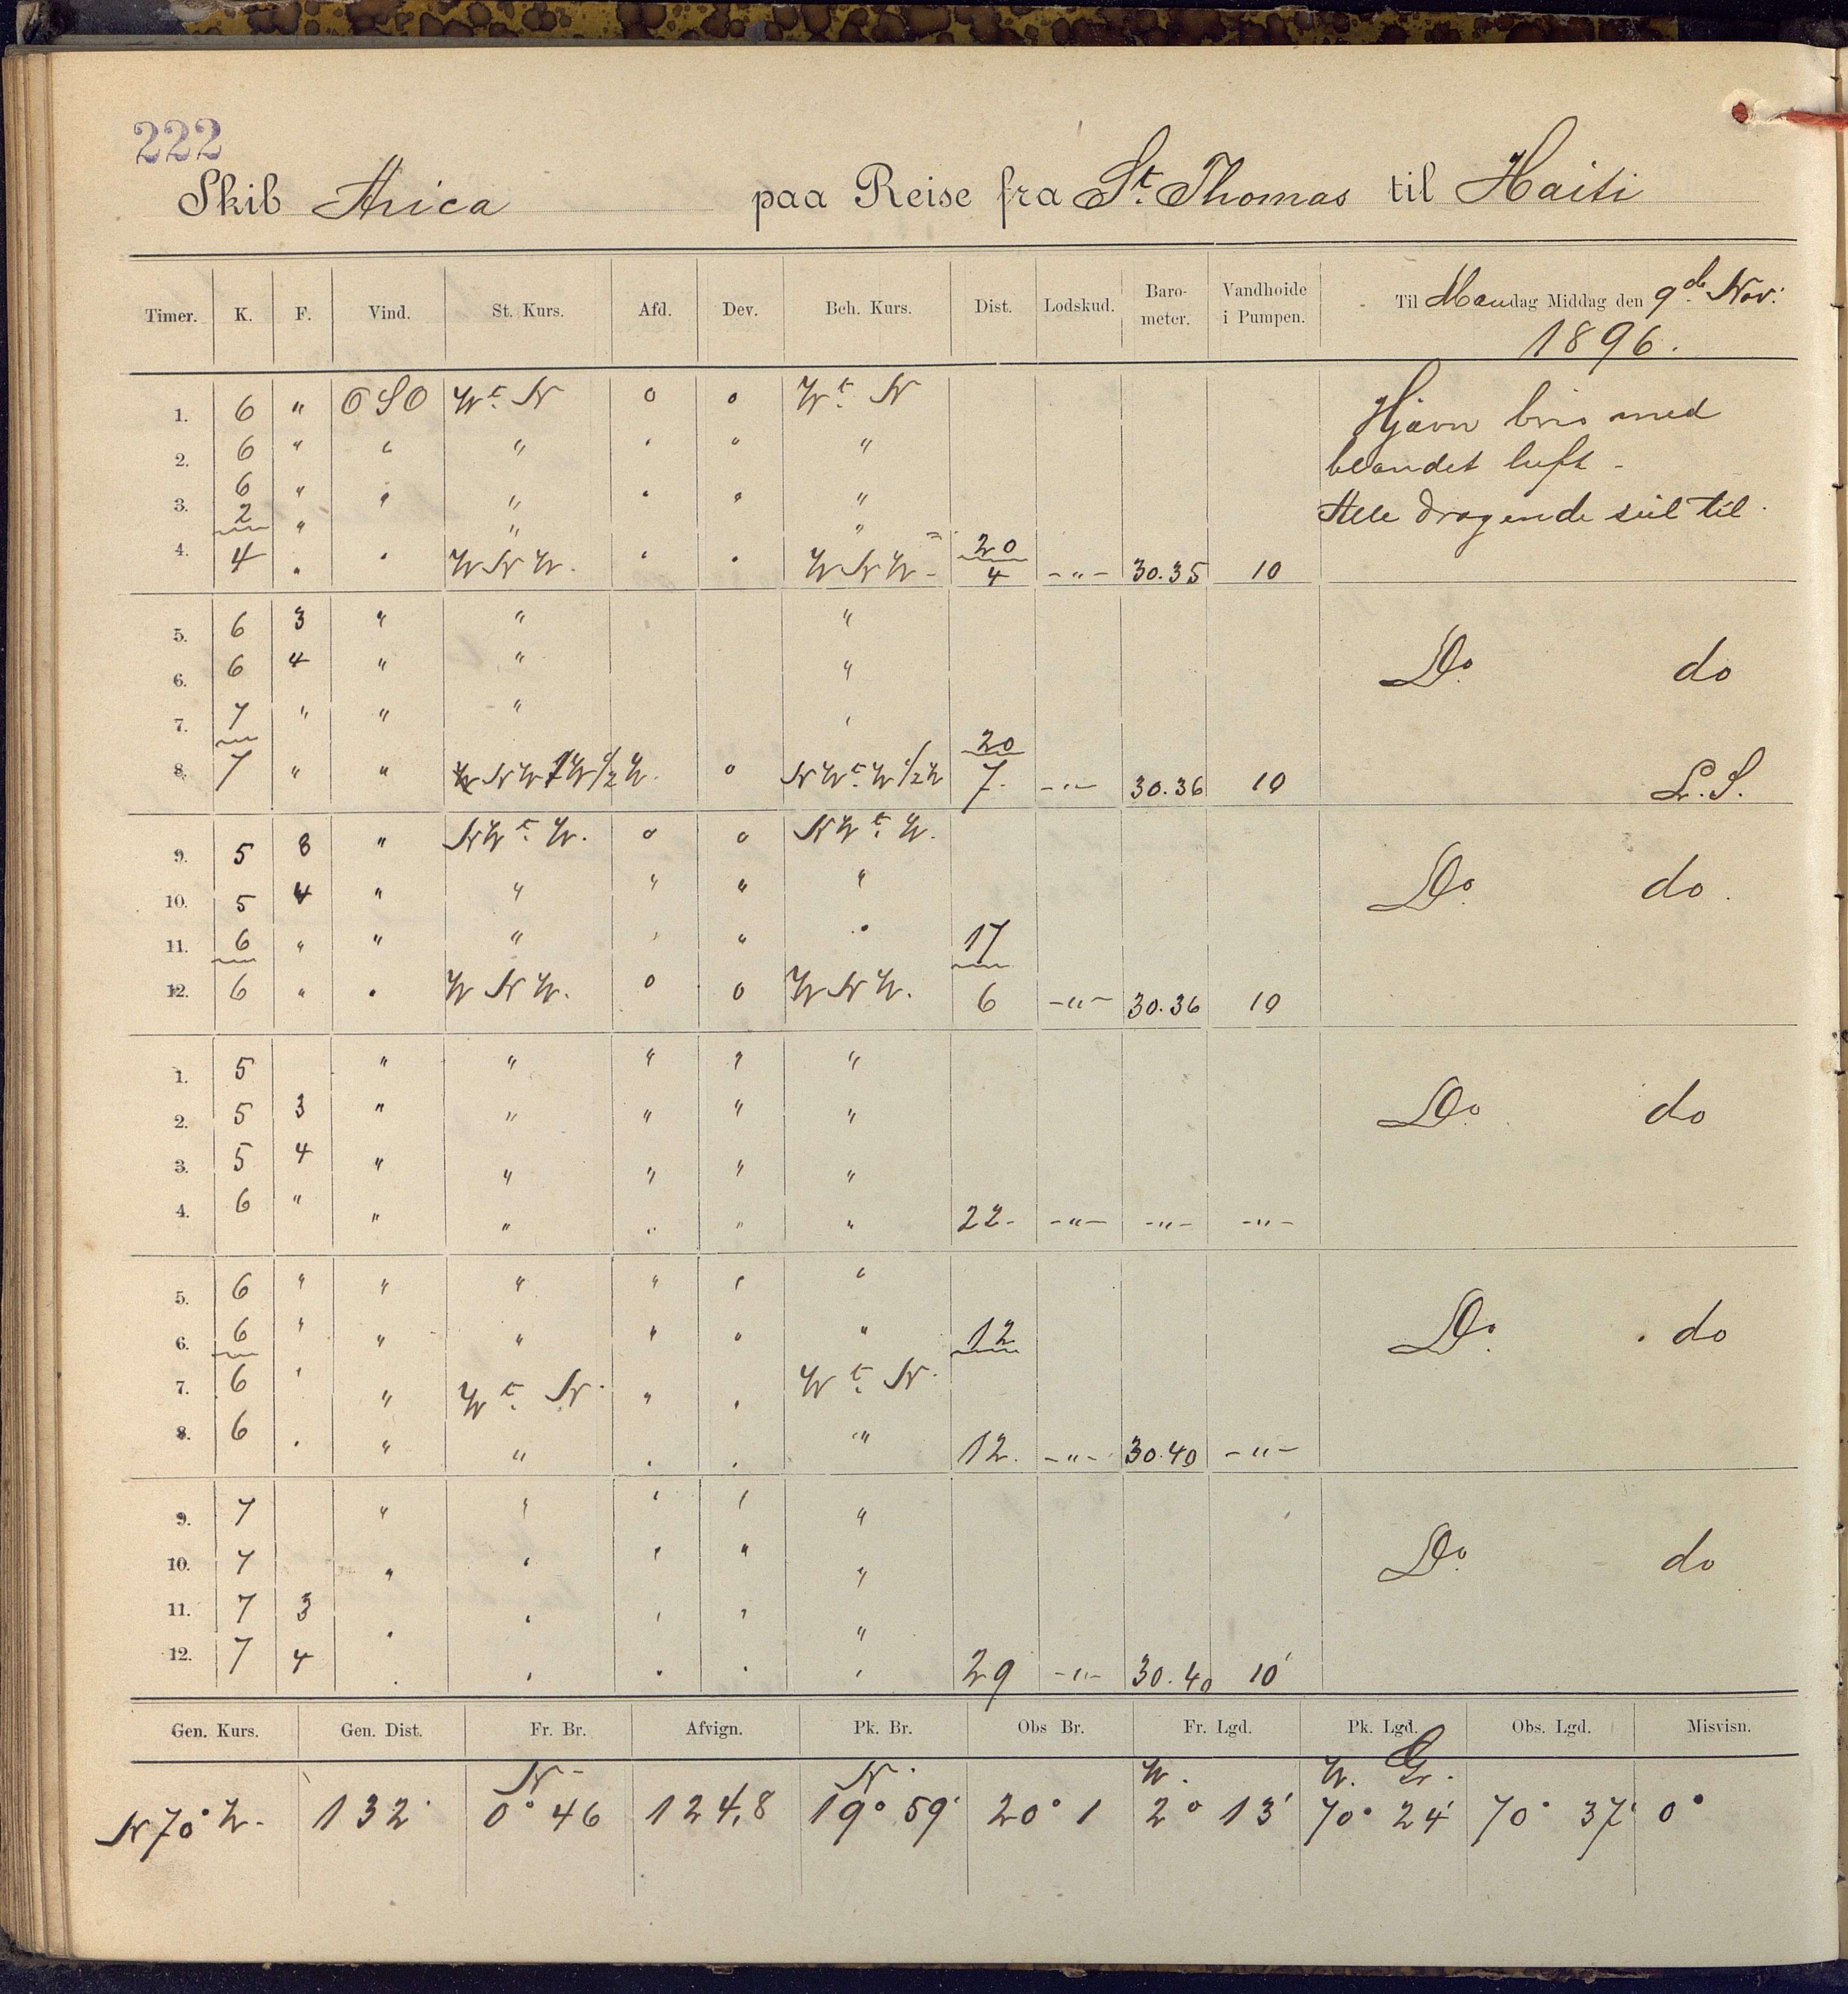 222
Skib Arica paa Reise fra St. Thomas til Haiti
Timer. K. F. Vind. St. Kurs. Afd. Dev. Beh. Kurs. Dist. Lodskud. Baro-meter. Vandhoide i Pumpen. Til Mandag Middag den 9de Nov:
1896.
1. 6 " OSO Wt. N o o Wt. N Hjævn bris med
2. 6 " " " " " " blandet luft -
3. 6 " " " " " " Alle dragende seil til.
2 " " " 20
4. 4 " " WNW. " " WNW - 4 -"- 30.35 10
5. 6 3 " " "
6. 6 4 " " " Do. do
7. 7 " " " " 20
8. 7 " " NWtW1/2W. o NWt.W1/2W 7. -"- 30.36 10 L.S.
9. 5 8 " NWt.W. o o NWt.W.
10. 5 4 " " " " " Do. do.
11. 6 " " " " " " 17
12. 6 " " WNW. o o WNW. 6 -"- 30.36 10
1. 5 " " " " "
2. 5 3 " " " " " Do. do
3. 5 4 " " " " "
4. 6 " " " " " " 22- -"- -"- -"-
5. 6 " " " " " "
6. 6 " " " " " " 12 Do. do
7. 6 " " Wt. N. " " Wt. N.
8. 6 " " " " " " 12. -"- 30.40 -"-
9. 7 " " " " "
10. 7 " " " " " Do. do
11. 7 3 " " " " "
12. 7 4 " " " " " 29 -"- 30.40 10
Gen. Kurs. Gen. Dist. Fr. Br. Afvign. Pk. Br. Obs Br. Fr. Lgd. Pk. Lgd. Obs. Lgd. Misvisn.
N- N. W. W. Gr.
N70°W. 132 0° 46 124,8 19° 59' 20° 1 2° 13' 70° 24' 70° 37' 0°